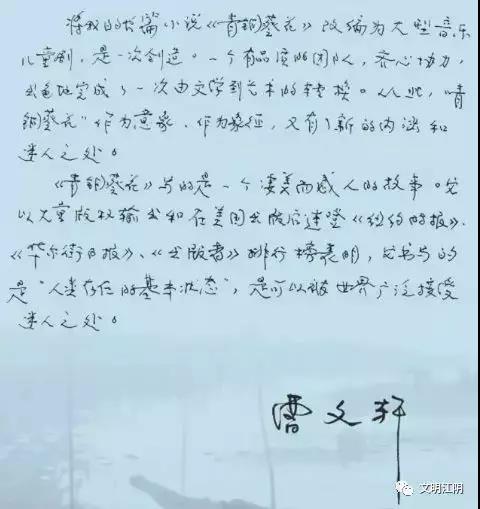 将我的长篇小说《青铜葵花》改编为大型音乐
儿童剧，是一次创造。一个有品质的团队，齐心协力，
出色地完成了一次由文学到艺术的转换。从此，“青
铜葵花”作为意象、作为象征，又有了新的内涵和
迷人之处。
《青铜葵花》写的是一个凄美而感人的故事。它
以大量版权输出和在美国出版后连登《纽约时报》、
《华尔街日报》、《出版者》排行榜表明，它书写的
是“人类存在的基本状态”，是可以被世界广泛接受
迷人之处。
曹文轩
文明江阴